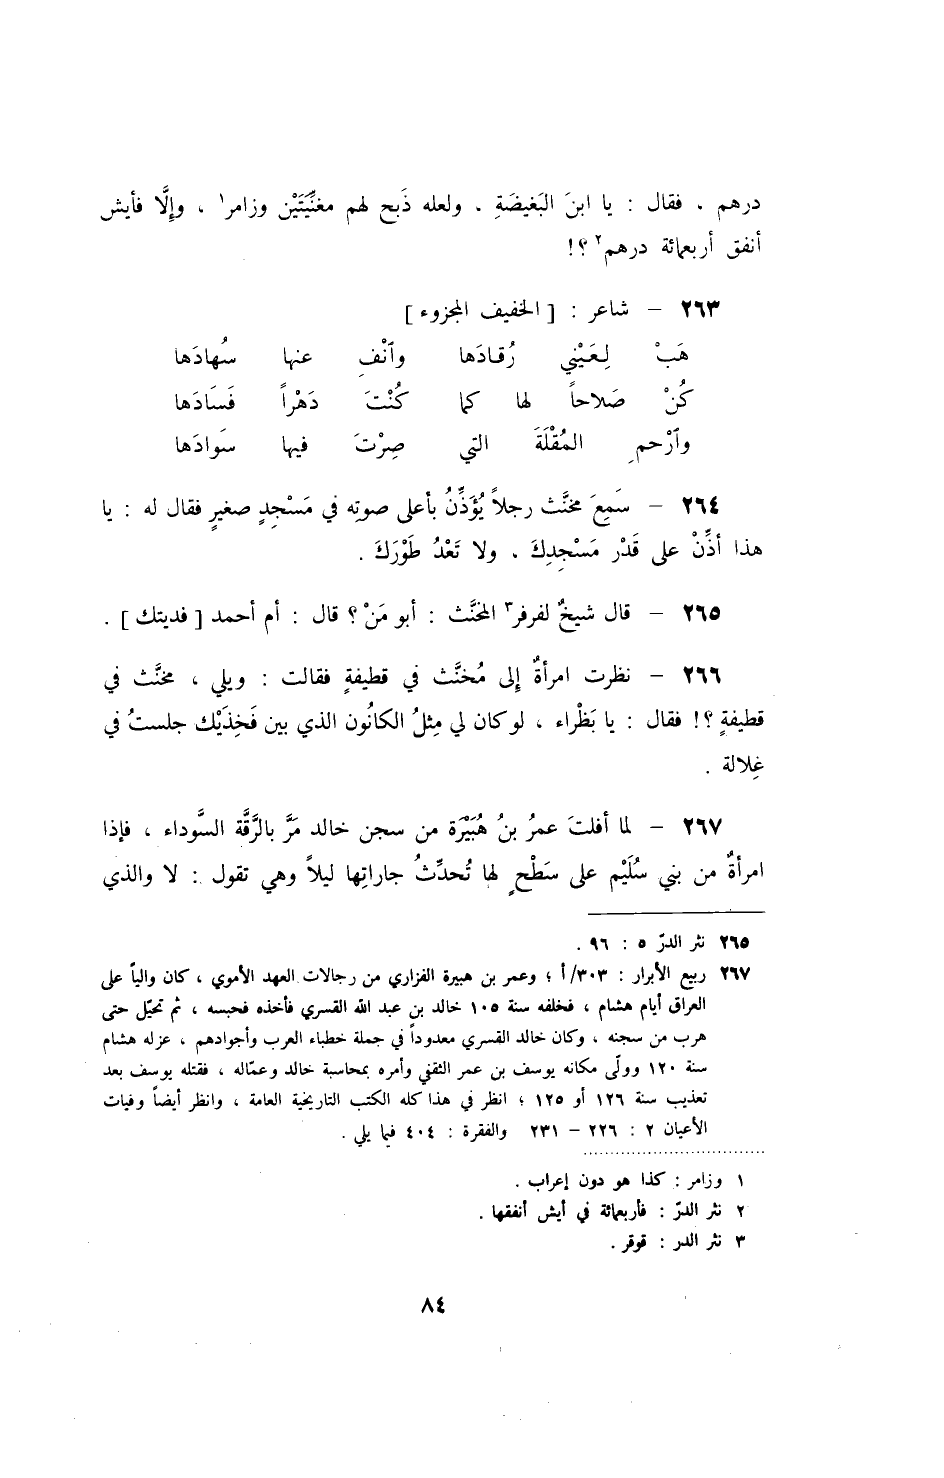 درهم . فقال : يا ابنَ البَغيضَةِ . ولعله ذَبح لهم مغنِّيَتَيْن وزامر١ ، وإلَّا فأيش
أنفق أربعمائة درهم٢ ؟!
٢٦٣ – شاعر : [ الخفيف المجزوء ]
هَبْ لِعَيْنِي رُقادَها وٱنْفِ عنها سُهادَها
كُنْ صَلاحاً لها كما كُنْتَ دَهْراً فَسَادَها
وٱرْحمِ المُقْلَةَ التي صِرْتَ فيها سَوادَها
٢٦٤ – سَمِعَ مخنَّث رجلاً يُؤَذِّنُ بأعلى صوتِه في مَسْجِدٍ صغيرٍ فقال له : يا
هذا أذِّنْ على قَدْر مَسْجدِكَ . ولا تَعْدُ طَوْرَكَ .
٢٦٥ – قال شيخٌ لفرفر٣ المخنَّث : أبو مَنْ ؟ قال : أم أحمد [ فديتك ] .
٢٦٦ – نظرت امرأةٌ إلى مُخنَّث في قطيفةٍ فقالت : ويلي ، مخنَّث في
قطيفةٍ ؟! فقال : يا بَظْراء ، لوكان لي مِثلُ الكانُون الذي بين فَخِذَيْك جلستُ في
غِلالة .
٢٦٧ – لما أفلتَ عمرُ بنُ هُبَيْرَة من سجن خالد مَرَّ بالرَّقَّة السَّوداء ، فإذا
امرأةٌ من بني سُلَيْم على سَطْحٍ لها تُحدِّثُ جاراتِها ليلاً وهي تقول : لا والذي
٢٦٥ نثر الدرّ ٥ : ٩٦ .
٢٦٧ ربيع الأبرار : ٣٠٣/أ ؛ وعمر بن هبيرة الفزاري من رجالات العهد الأموي ، كان والياً على
العراق أيام هشام ، فخلفه سنة ١٠٥ خالد بن عبد الله القسري فأخذه فحبسه ، ثم تحيّل حتى
هرب من سجنه ، وكان خالد القسري معدوداً في جملة خطباء العرب وأجوادهم ، عزله هشام
سنة ١٢٠ وولّى مكانه يوسف بن عمر الثقفي وأمره بمحاسبة خالد وعمّاله ، فقتله يوسف بعد
تعذيب سنة ١٢٦ أو ١٢٥ ؛ انظر في هذا كله الكتب التاريخية العامة ، وانظر أيضاً وفيات
الأعيان ٢ : ٢٢٦ – ٢٣١ والفقرة : ٤٠٤ فيما يلي .
١ وزامر : كذا هو دون إعراب .
٢ نثر الدرّ : فأربعمائة في أيش أنفقها .
٣ نثر الدر : قوقر .
٨٤